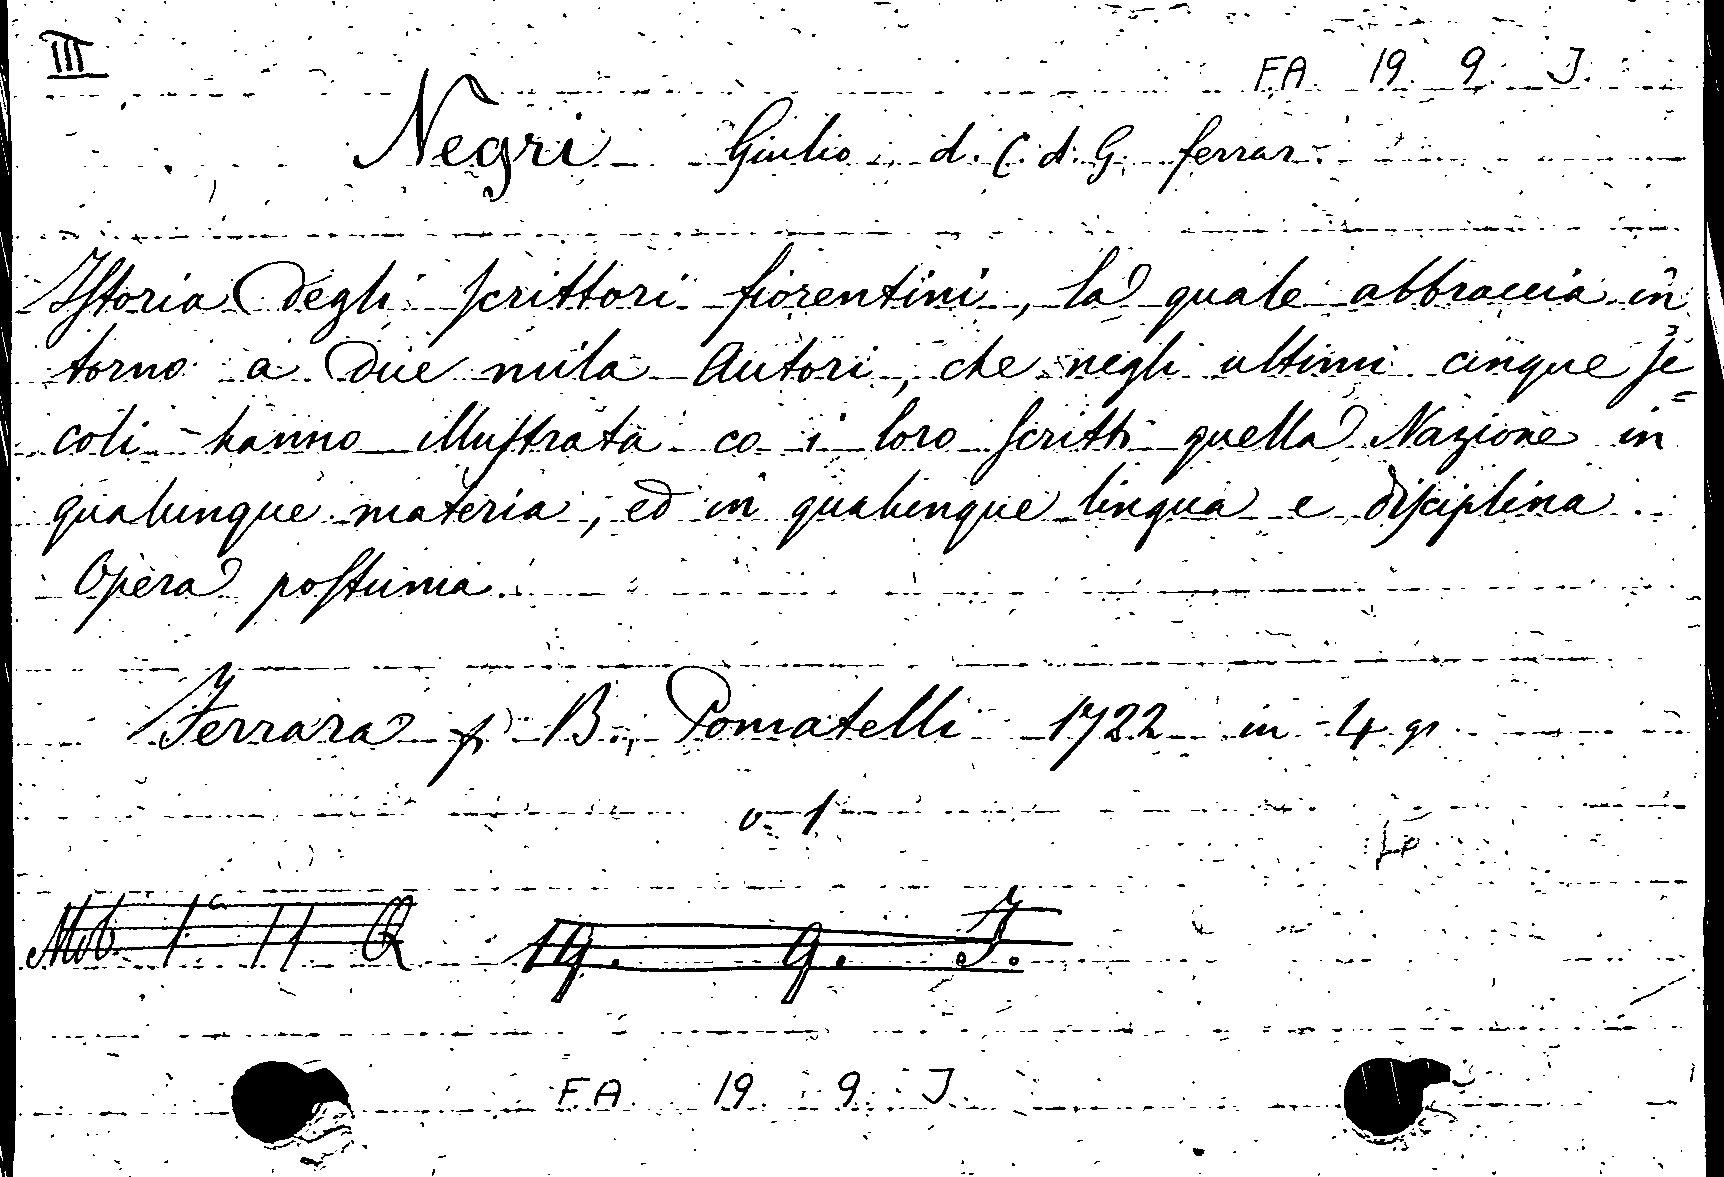 III
FA. 19. 9. J.
Negri Giulio d. C. d. G. ferrar.
Istoria degli scrittori fiorentini, la quale abbraccia in
torno a due mila Autori, che negli ultimi cinque se=
coli hanno illustrata co i loro scritti quella Nazione in
qualunque materia, ed in qualunque lingua e disciplina.
Opera postuma.
Ferrara p. B. Pomatelli 1722 in 4 gr
v. 1
Mob. 1a 11 Q 19. 9. J.
FA. 19. 9. J.